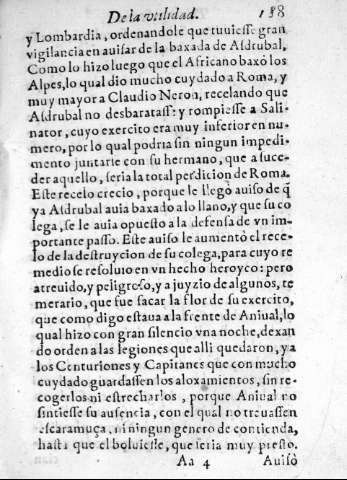 De la vtilidad. 188
y Lombardia, ordenandole que tuuiesse gran
vigilancia en auisar de la baxada de Asdrubal,
Como lo hizo luego que el Africano baxó los
Alpes, lo qual dio mucho cuydado a Roma, y
muy mayor a Claudio Neron, recelando que
Asdrubal no desbaratasse y rompiesse a Sali-
nator, cuyo exercito era muy inferior en nu-
mero, por lo qual podria sin ningun impedi-
mento juntarse con su hermano, que a suce-
der aquello, seria la total perdicion de Roma.
Este recelo crecio, porque le llegò auiso de q̃
ya Asdrubal auia baxado a lo llano, y que su co
lega, se le auia opuesto a la defensa de vn im-
portante passo. Este auiso le aumentò el rece-
lo de la destruycion de su colega, para cuyo re
medio se resoluio en vn hecho heroyco: pero
atreuido, y peligroso, y a juyzio de algunos, te
merario, que fue sacar la flor de su exercito,
que como digo estaua a la frente de Anibal, lo
qual hizo con gran silencio vna noche, dexan
do orden a las legiones que alli quedaron, y a
los Centuriones y Capitanes que con mucho
cuydado guardassen los aloxamientos, sin re-
cogerlos ni estrecharlos, porque Anibal no
sintiesse su ausencia, con el qual no trauassen
escaramuça, ni ningun genero de contienda,
hasta que el boluiesse, que seria muy presto.
Aa 4 Auisò